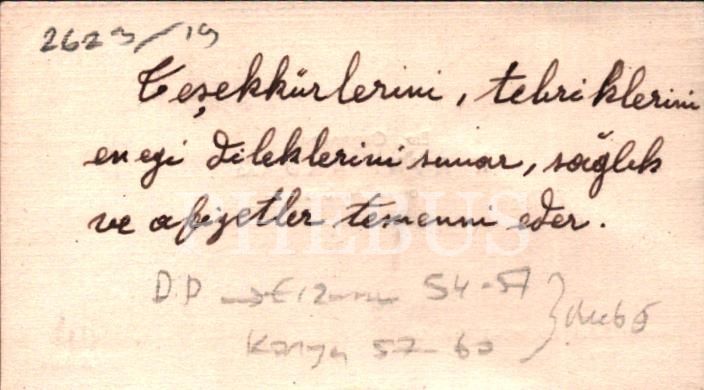 2623/19
Teşekkürlerini, tebriklerini
en eyi dileklerini sunar, sağlık
ve afiyetler temenni eder.
PHEBUS
D.P → 54-57
Konya 57-60